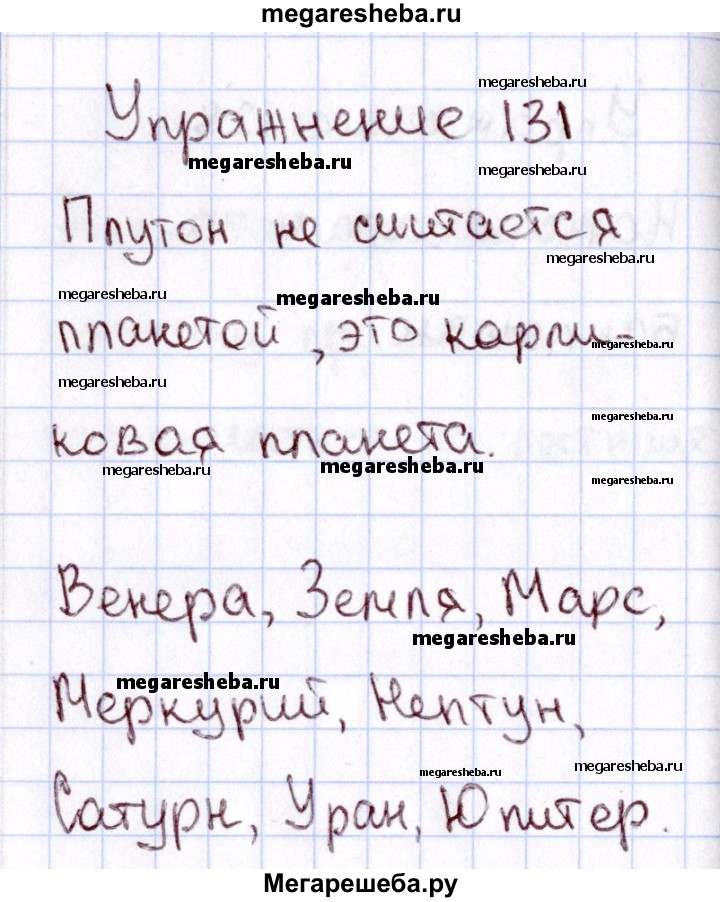 megaresheba.ru
megaresheba.ru
Упражнение 131
megaresheba.ru
megaresheba.ru
Плутон не считается
megaresheba.ru
megaresheba.ru
megaresheba.ru
планетой, это карли-
megaresheba.ru
megaresheba.ru
megaresheba.ru
ковая планета.
megaresheba.ru
megaresheba.ru
megaresheba.ru
Венера, Земля, Марс,
megaresheba.ru
megaresheba.ru
Меркурий, Нептун,
megaresheba.ru
megaresheba.ru
Сатурн, Уран, Юпитер.
Мегарешеба.ру